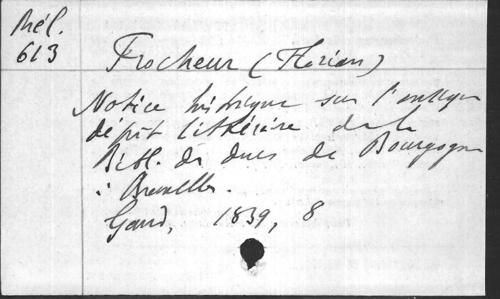 Mél.
613
Frocheur (Florian)
Notice historique sur l'ancien
dépôt littéraire de la
Bibl. de ducs de Bourgogne
à Bruxelles.
Gand, 1839, 8